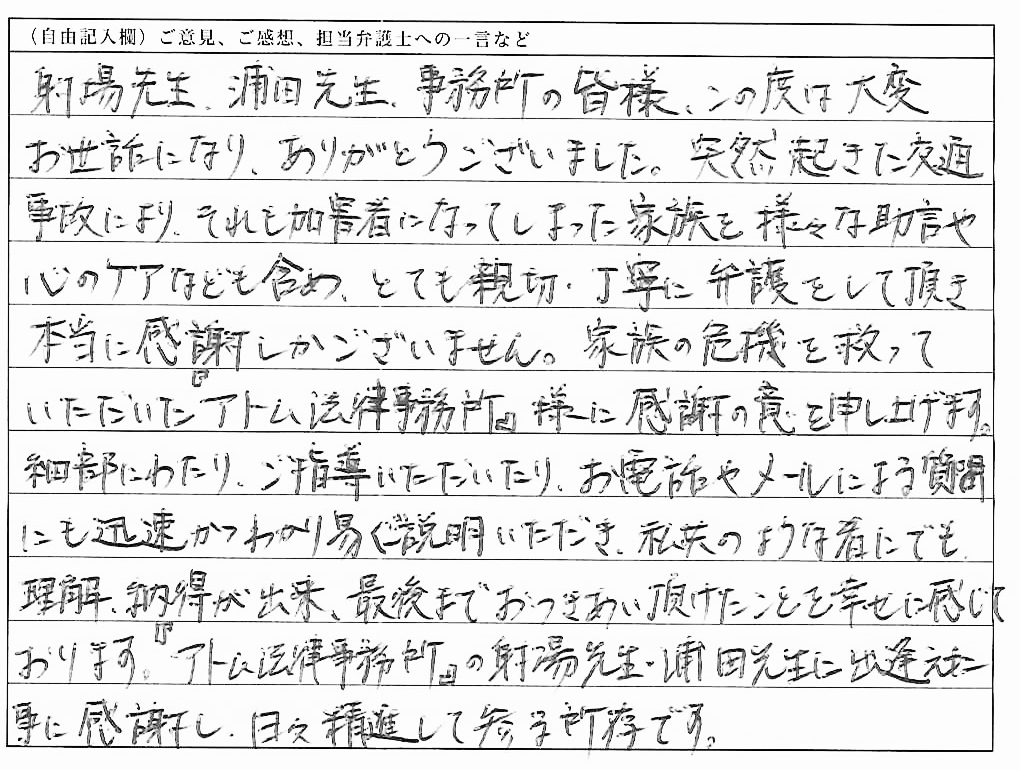 （自由記入欄）ご意見、ご感想、担当弁護士への一言など
射場先生、浦田先生、事務所の皆様、この度は大変
お世話になり、ありがとうございました。突然起きた交通
事故により、それも加害者になってしまった家族を様々な助言や
心のケアなども含め、とても親切・丁寧に弁護をして頂き
本当に感謝しかございません。家族の危機を救って
いただいた『アトム法律事務所』様に感謝の意を申し上げます。
細部にわたり、ご指導いただいたり、お電話やメールによる質問
にも迅速かつわかり易くご説明いただき、私共のような者にでも、
理解、納得が出来、最後までおつきあい頂けたことを幸せに感じて
おります。『アトム法律事務所』の射場先生・浦田先生に出逢えた
事に感謝し、日々精進して参る所存です。